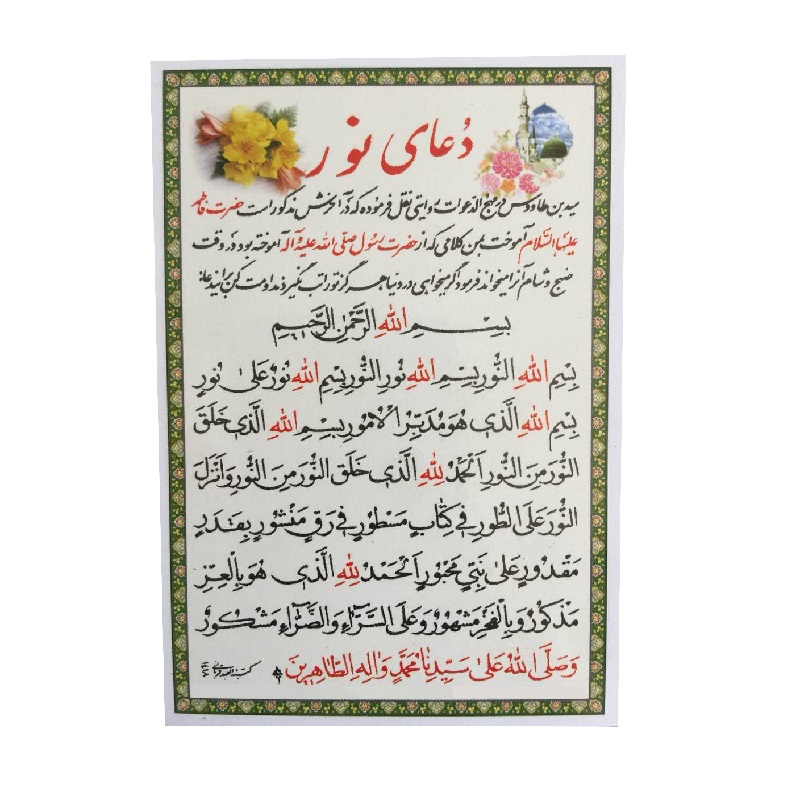 دُعای نور
سید بن طاووس در مهج الدعوات روایتی نقل فرموده که در آخرش مذکور است حضرت فاطمه
علیها السلام آموخت بمن کلامی که از حضرت رسول صلی الله علیه و آله آموخته بود در وقت
صبح و شام آنرا میخواند فرمود اگر میخواهی در دنیا هرگز تو را تب نگیرد مداومت کن بر این دعا:
بِسْمِ اللهِ الرَّحْمٰنِ الرَّحِیمِ
بِسْمِ اللهِ النُّورِ بِسْمِ اللهِ نُورِ النُّورِ بِسْمِ اللهِ نُورٌ عَلیٰ نُورٍ
بِسْمِ اللهِ الَّذی هُوَ مُدَبِّرُ الْاُمُورِ بِسْمِ اللهِ الَّذی خَلَقَ
النُّورَ مِنَ النُّورِ اَلْحَمْدُ لِلّٰهِ الَّذی خَلَقَ النُّورَ مِنَ النُّورِ وَ اَنْزَلَ
النُّورَ عَلَی الطُّورِ فی کِتابٍ مَسْطُورٍ فی رَقٍّ مَنْشُورٍ بِقَدَرٍ
مَقْدُورٍ عَلیٰ نَبِیٍّ مَحْبُورٍ اَلْحَمْدُ لِلّٰهِ الَّذی هُوَ بِالْعِزِّ
مَذْکُورٌ وَ بِالْفَخْرِ مَشْهُورٌ وَ عَلَی السَّرّآءِ وَ الضَّرّآءِ مَشْکُورٌ
وَ صَلَّی اللهُ عَلیٰ سَیِّدِنا مُحَمَّدٍ وَ الِهِ الطّاهِرینَ